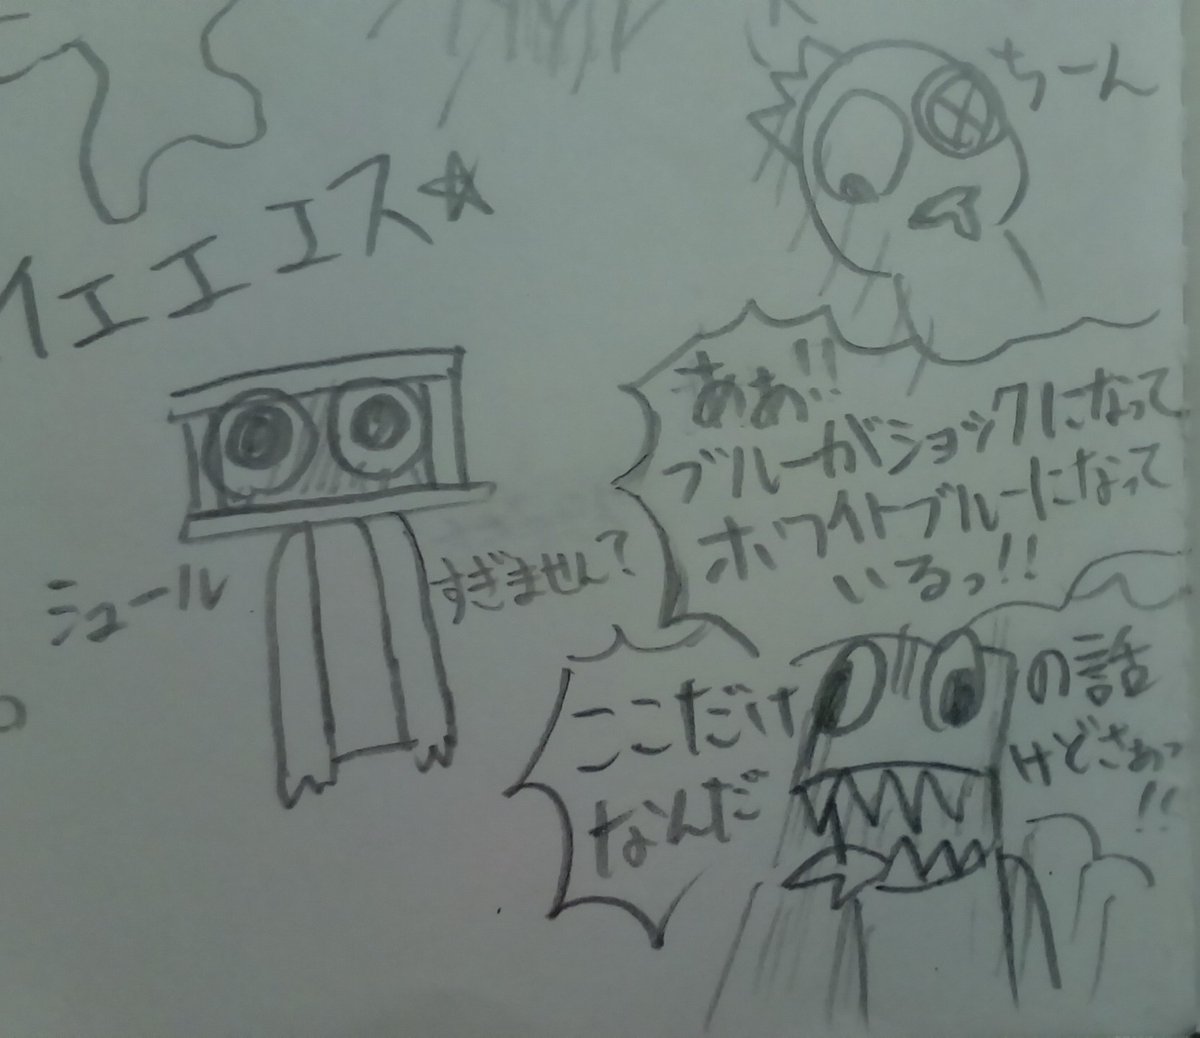 ちーん
イエエエス☆
ああ!!
ブルーがショックになって
ホワイトブルーになって
いるっ!!
シュール
すぎません?
ここだけ
の話
なんだ
けどさあっ
!!